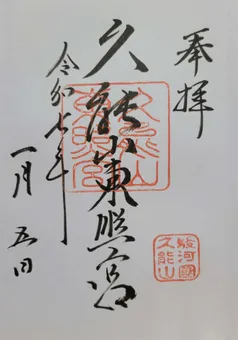 奉拝
久能山東照宮
令和七年
一月五日
駿河國
久能山